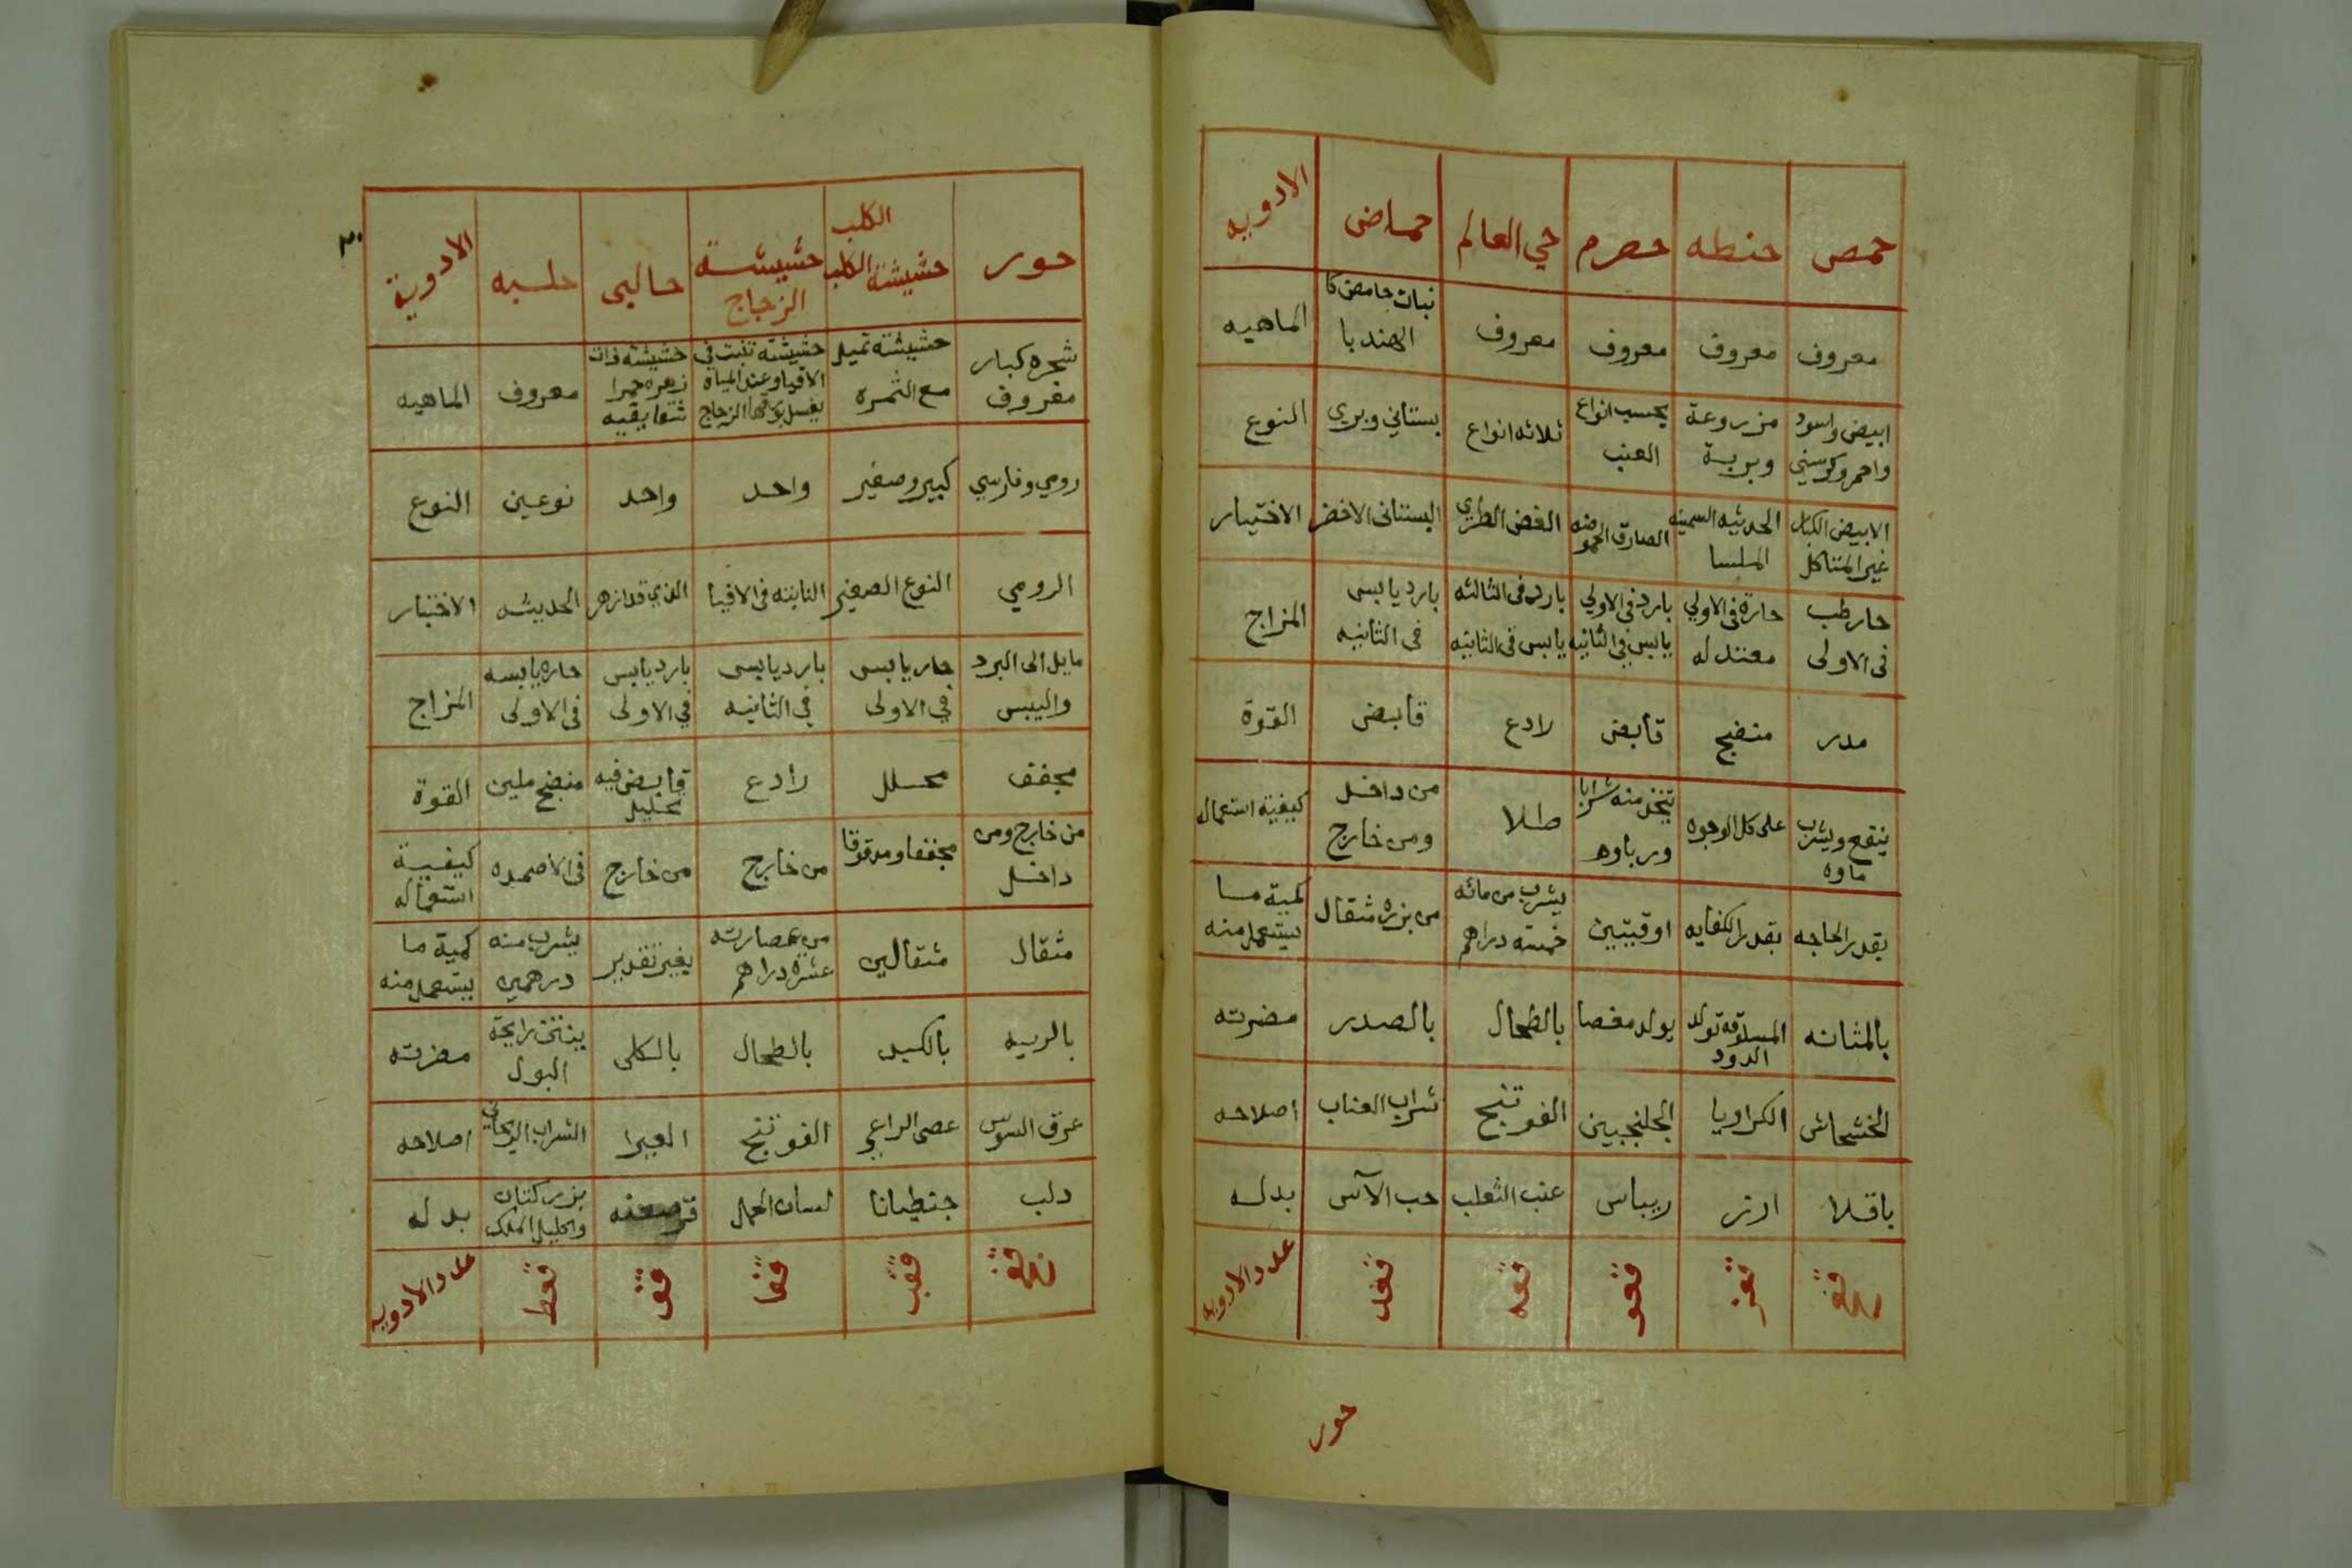 حمص حنطه حصرم حي العالم حماض الادويه
معروف معروف معروف معروف نبات حامض كا الهندبا الماهيه
ابيض واسود واحمر وكرسني مزروعة وبرية بحسب انواع العنب ثلاثه انواع بستاني وبري النوع
الابيض الكبار غير المتاكل الحديثه السمينه الملسا الصادق الحموضه الغض الطري البستاني الاخضر الاختيار
حار رطب فى الاولى حارة فى الاولي معتدله بارد فى الاولي يابس في الثانيه بارد فى الثالثه يابس فى الثانيه بارد يابس فى الثانيه المزاج
مدر منضج قابض رادع قابض القوة
ينقع ويشرب ماوه على كل الوجوه يتخذ منه شرابا ورباوه طلا من داخل ومن خارج كيفية استعمال
بقدر الحاجه بقدر الكفايه اوقيتين يشرب من مائه خمسة دراهم من بزره مثقال كمية ما يستعمل منه
بالمثانه المسلوقه تولد الدود يولد مغصا بالطحال بالصدر مضرته
الخشخاش الكراويا الجلنجبين الفوتنج شراب العناب اصلاحه
باقلا ارز ريباس عنب الثعلب حب الآس بدله
قعح قعز قعو قعه قعد عدد الادويه
حور
٣٠
حور حشيشة الكلب الكلب حشيشة الزجاج حالبى حلبه الادوية
شجره كبار معروف حشيشته تميل مع الثمره حشيشته تنبت في الافيا وعند المياه يغسل بورقها الزجاج حشيشه ذات زهره حمرا معروف الماهيه
رومي وفارسي كبير وصغير واحد واحد نوعين النوع
الرومي النوع الصغير النابته فى الافيا الذي قد ازهر الحديثه الاختيار
مايل الى البرد واليبس حار يابس في الاولى بارد يابس في الثانيه بارد يابس في الاولى حاره يابسه فى الاولى المزاج
مجفف محلل رادع قابض فيه تحليل منضج ملين القوة
من خارج ومن داخل مجففا ومدقوقا من خارج من خارج فى الاضمده كيفية استعماله
مثقال مثقالين من عصارته عشرة دراهم بغير تقدير يشرب منه درهمين كمية ما يستعمل منه
بالريه بالكبد بالطحال بالكلى ينتن رايحة البول مضرته
عرق السوس عصى الراعي الفوتنج الغبيرا الشراب الريحاني اصلاحه
دلب جنطيانا لسان الحمل قرصعنه بزر كتان واكليل الملك بدله
قفج قفب قفا قف قعط عدد الادويه